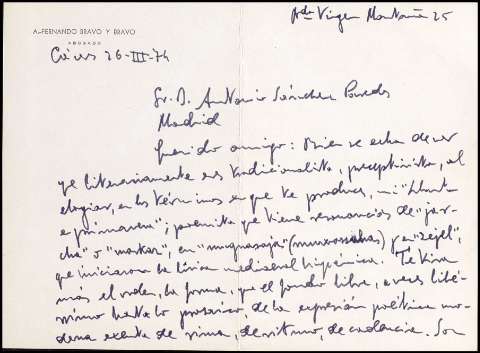 Avda Virgen Montaña 25
A. FERNANDO BRAVO Y BRAVO
ABOGADO
Cáceres 26-III-74
Sr. D. Antonio Sánchez Paredes
Madrid
Querido amigo: Bien se echa de ver
que literariamente es tradicionalista, preceptivista, al
elogiar, en los términos en que te produces, mi
e primavera"; poemita que tiene resonancias de "jar-
cha" o "markaz", en "muguasaja" y en "zejel",
que iniciaron la lírica medieval hispánica. Te tira
más el orden, la forma, que el fondo libre, a veces libé-
rrimo hasta lo prosaico, de la expresión poética mo-
derna exenta de rima, de ritmo, de cadencia. Son